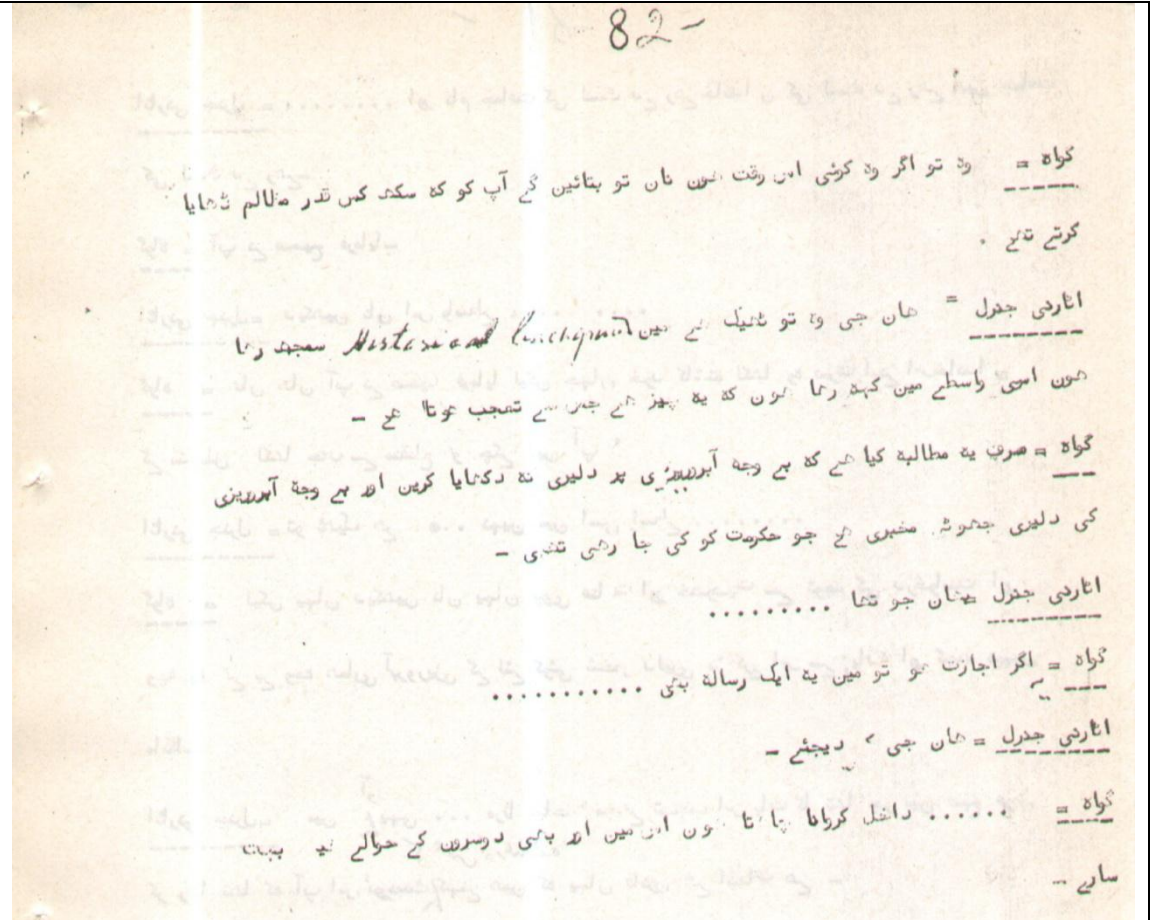 82-
گواہ = وہ تو اگر وہ کوئی اس وقت ہوں ناں تو بتائیں گے آپ کو کہ سکھ کس قدر مظالم ڈھایا
کرتے تھے .
اٹارنی جنرل = ہاں جی وہ تو ٹھیک ہے میں Historical سمجھ رہا
ہوں اسی واسطے میں کہہ رہا ہوں کہ یہ چیز ہے جس سے تعجب ہوتا ہے -
گواہ = صرف یہ مطالبہ کیا ہے کہ بے وجہ آبروریزی پر دلیری نہ دکھایا کریں اور بے وجہ آبروریزی
کی دلیری جھوٹہ مخبری ہے جو حکومت کو کی جا رہی تھی -
اٹارنی جنرل ہاں جو تھا .........
گواہ = اگر اجازت ہو تو میں یہ ایک رسالہ بھی ...........
اٹارنی جنرل = ہاں جی ، دیجئے -
گواہ = ...... داخل کروانا چاہتا ہوں اس میں اور بھی دوسروں کے حوالے بہت
سارے --